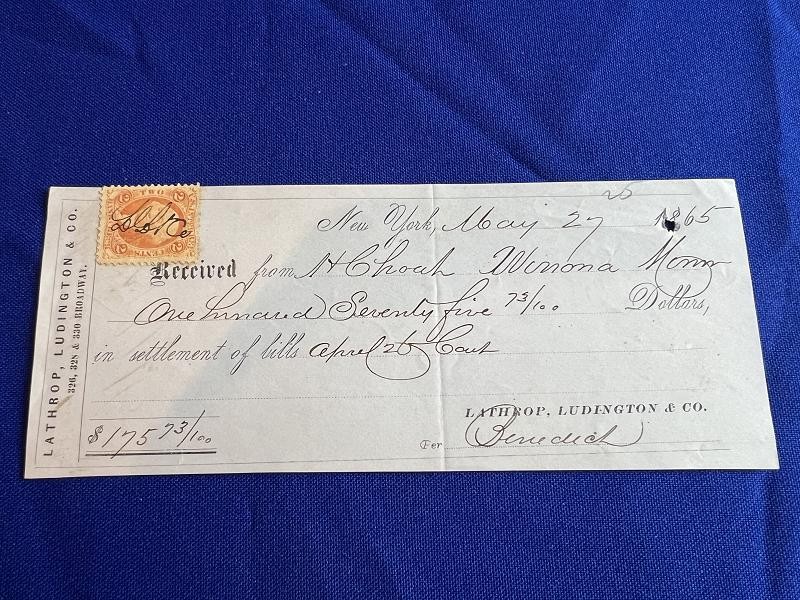 LATHROP, LUDINGTON & CO.
326, 328 & 330 BROADWAY.
TWO
2 2
CENTS
L L & Co
25
New York, May 27 1865
Received from H Choat Winona Minn
One hundred Seventy five 73/100 Dollars,
in settlement of bills April 26
$175 73/100
LATHROP, LUDINGTON & CO.
Per Benedict